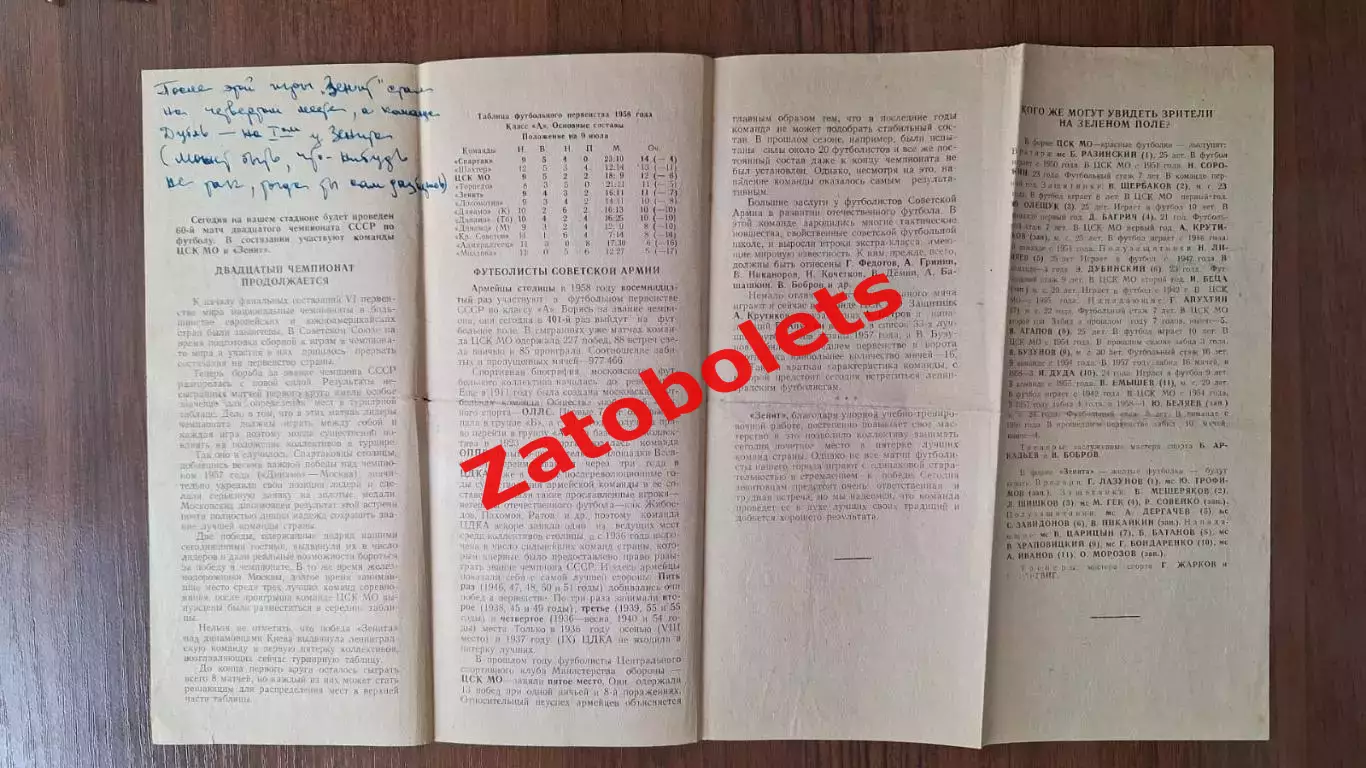 После этой игры "Зенит" стал
на четвертом месте, а команда
Дубль — на I ом у Зенита
(может быть, что-нибудь
не так, тогда ты сам
Сегодня на нашем стадионе будет проведен
60-й матч двадцатого чемпионата СССР по
футболу. В состязании участвуют команды
ЦСК МО и «Зенит».
ДВАДЦАТЫЙ ЧЕМПИОНАТ
ПРОДОЛЖАЕТСЯ
К началу финальных состязаний VI первен-
ства мира национальные чемпионаты в боль-
шинстве европейских и южноамериканских
стран были закончены. В Советском Союзе на
время подготовки сборной к играм в чемпиона-
те мира и участия в них пришлось прервать
состязания на первенство страны.
Теперь борьба за звание чемпиона СССР
разгорелась с новой силой. Результаты не-
сыгранных матчей первого круга имели особое
значение для определения мест в турнирной
таблице. Дело в том, что в этих матчах лидеры
чемпионата должны играть между собой и
каждая игра поэтому могла существенно по-
влиять на положение коллективов в турнире.
Так оно и случилось. Спартаковцы столицы,
добившись весьма важной победы над чемпио-
ном 1957 года («Динамо»—Москва) значи-
тельно укрепили свои позиции лидера и сде-
лали серьезную заявку на золотые медали.
Московских динамовцев результат этой встречи
почти полностью лишил надежд сохранить зва-
ние лучшей команды страны.
Две победы, одержанные подряд нашими
сегодняшними гостями, выдвинули их в число
лидеров и дали реальные возможности бороться
за победу в чемпионате. В то же время желез-
нодорожники Москвы, долгое время занимав-
шие место среди трех лучших команд соревно-
вания, после проигрыша команде ЦСК МО вы-
нуждены были разместиться в середине табли-
цы.
Нельзя не отметить, что победа «Зенита»
над динамовцами Киева выдвинула ленинград-
скую команду в первую пятерку коллективов,
возглавляющих сейчас турнирную таблицу.
До конца первого круга осталось сыграть
всего 8 матчей, но каждый из них может стать
решающим для распределения мест в верхней
части таблицы.
Таблица футбольного первенства 1958 года
Класс «А». Основные составы
Положение на 9 июля
Команды И. В. Н. П. М. Оч.
«Спартак» 9 5 4 0 23:10 14 (—4)
«Шахтер» 12 5 3 4 12:14 13 (—11)
ЦСК МО 9 5 2 2 18:9 12 (—6)
«Торпедо» 8 3 5 0 21:11 11 (—5)
«Зенит» 9 4 3 2 16:11 11 (—7)
«Локомотив» 9 14:11 (—8)
«Динамо» (К) 10 2 6 2 16:13 10 (—10)
«Динамо» (Тб) 10 4 2 4 16:25 10 (—10)
«Динамо» (М) 9 12:9 (—10)
«Кр. Советов» 7:14 (—14)
«Адмиралтеец» 11 3 0 8 17:30 6 (—16)
«Молдова» 11 0 5 6 12:27 5 (—17)
ФУТБОЛИСТЫ СОВЕТСКОЙ АРМИИ
Армейцы столицы в 1958 году восемнадца-
тый раз участвуют в футбольном первенстве
СССР по классу «А». Борясь за звание чемпи-
она, они сегодня в 401-й раз выйдут на фут-
больное поле. В сыгранных уже матчах коман-
да ЦСК МО одержала 227 побед, 88 встреч све-
ла вничью и 85 проиграла. Соотношение заби-
тых и пропущенных мячей—977:466.
Спортивная биография московского фут-
больного коллектива началась до рево
Еще в 1911 году была создана московская
больная команда Общества лыж
ного спорта—ОЛЛС. Первые
ду играла в классе «Б»,
во перейти в группу «А»
тива в 1923
ОППВ
ЦДКА
послереволюционные го-
армейской команды и в ее со-
такие прославленные игроки—
ветераны отечественного футбола—как Жибое-
дов, Пахомов, Ратов и др., поэтому команда
ЦДКА вскоре заняла одно из ведущих мест
среди коллективов столицы, а с 1936 года вошла
в число сильнейших команд страны, кото-
рым впервые было предоставлено право разы-
грать звание чемпиона СССР. И здесь армейцы
показали себя с самой лучшей стороны. Пять
раз (1946, 47, 48, 50 и 51 годы) добивались они
побед в первенстве. По три раза занимали вто-
рое (1938, 45 и 49 годы), третье (1939, 55 и 55
годы) и четвертое (1936—весна, 1940 и 54 го-
ды) места. Только в 1936 году осенью (VIII
место) и 1937 году (IX) ЦДКА не входила в
пятерку лучших.
В прошлом году футболисты Центрального
спортивного клуба Министерства обороны —
ЦСК МО—заняли пятое место. Они одержали
13 побед при одной ничьей и 8-й поражениях.
Относительный неуспех армейцев объясняется
главным образом тем, что в последние годы
команда не может подобрать стабильный со-
став. В прошлом сезоне, например, были испы-
таны силы около 20 футболистов и все же по-
стоянный состав даже к концу чемпионата не
был установлен. Однако, несмотря на это, на-
падение команды оказалось самым результа-
тивным.
Большие заслуги у футболистов Советской
Армии в развитии отечественного футбола. В
этой команде зародились многие тактические
новшества, свойственные советской футбольной
школе, и выросли игроки экстра-класса, имею-
щие мировую известность. К ним, прежде всего,
должны быть отнесены Г. Федотов, А. Гринин,
В. Никаноров, И. Кочетков, В. Дёмин, А. Ба-
шашкин, В. Бобров и др.
Немало отличных мастеров кожаного мяча
играют и сейчас в команде ЦСК МО. Защитник
А. Крутиков
нападающий
Агапов в список 33-х луч-
ших футболистов 1957 года, а В. Бузу-
нов в прошлом первенстве в ворота
противника наибольшее количество мячей—16.
Такова краткая характеристика команды, с
которой предстоит сегодня встретиться ленин-
градским футболистам.
* * *
«Зенит», благодаря упорной учебно-трениро-
вочной работе, постепенно повышает свое мас-
терство и это позволило коллективу занимать
сегодня почетное место в пятерке лучших
команд страны. Однако не все матчи футболи-
сты нашего города играют с одинаковой стара-
тельностью и стремлением к победе. Сегодня
зенитовцам предстоит очень ответственная и
трудная встреча, но мы надеемся, что команда
проведет ее в духе лучших своих традиций и
добьется хорошего результата.
КОГО ЖЕ МОГУТ УВИДЕТЬ ЗРИТЕЛИ
НА ЗЕЛЕНОМ ПОЛЕ?
В форме ЦСК МО—красные футболки — выступят:
Вратари мс Б. РАЗИНСКИЙ (1), 25 лет. В футбол
играет с 1950 года. В ЦСК МО с 1951 года. Н. СОРО-
КИН, 23 года. Футбольный стаж 7 лет. В команде пер-
вый год. Защитники: В. ЩЕРБАКОВ (2), м. с. 23
года. В футбол играет 8 лет. В ЦСК МО первый год.
Ю. ОЛЕЩУК (3), м. с. 25 лет. Играет в футбол 10 лет. В
команде первый год. Д. БАГРИЧ (4), 21 год. Футболь-
ный стаж 5 лет. В ЦСК МО первый год. А. КРУТИ-
КОВ (зап.), м. с. 25 лет. В футбол играет с 1946 года.
В команде с 1954 года. Полузащитники: Н. ЛИ-
НЯЕВ (5) 25 лет. Играет в футбол с 1947 года. В
команде—3 года. Э. ДУБИНСКИЙ (6) 23 года. Фут-
больный стаж 7 лет. В ЦСК МО второй год. И. БЕЦА
(зап.) м. с. 29 лет. Играет в футбол с 1942 г. В ЦСК
МО—1955 года. Нападающие: Г. АПУХТИН
(7), м. с. 22 года. Футбольный стаж 7 лет. В ЦСК МО
второй год. Забил в прошлом году 7 голов—5.
А. АГАПОВ (8), м. с. 25 лет. В футбол играет 10 лет. В
ЦСК МО с 1954 года. В прошлом сезоне забил 3 гола.
В. БУЗУНОВ (9), м. с. 30 лет. Футбольный стаж 16 лет.
В команде с 1954 года. В 1957 году забил 16 мячей, в
1958—3. И. ДУДА (10), 24 года. Играет в футбол 9 лет.
В команде с 1955 года. В. ЕМЫШЕВ (11), м. с. 29 лет
В футбол играет с 1942 года. В ЦСК МО с 1954 года.
1957 году забил 7 мячей, в 1958—1. Ю. БЕЛЯЕВ (зап.),
м. с. 24 года. Футбольный стаж 8 лет. В команде с
1956 года. В прошлом первенстве забил 10 мячей,
в нынешнем—4.
Тренеры: заслуженные мастера спорта Б. АР-
КАДЬЕВ и В. БОБРОВ.
В форме «Зенита» — желтые футболки — будут
играть: Вратари: Г. ЛАЗУНОВ (1), мс Ю. ТРОФИ-
МОВ (зап.). Защитники: Б. МЕЩЕРЯКОВ (2),
Л. ШИШКОВ (3), мс М. ГЕК (4), Р. СОВЕНКО (зап.).
Полузащитники: мс А. ДЕРГАЧЕВ (5), мс
С. ЗАВИДОНОВ (6), В. ПИКАЙКИН (зап.). Напада-
ющие: мс В. ЦАРИЦЫН (7), Б. БАТАНОВ (5), мс
В. ХРАПОВИЦКИЙ (9), мс Г. БОНДАРЕНКО (10), мс
А. ИВАНОВ (11), О. МОРОЗОВ (зап.).
Тренеры: мастера спорта Г. ЖАРКОВ и
Zatobolets